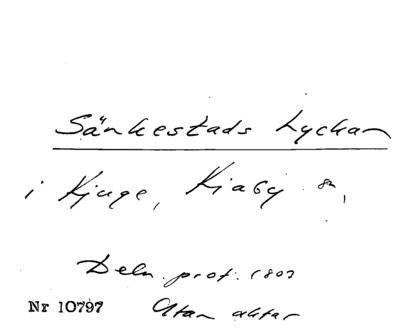 Sänkestads Lyckan
i Kjuge, Kiaby sn,
Deln. prot. 1803
Nr 10797 Utan aktar